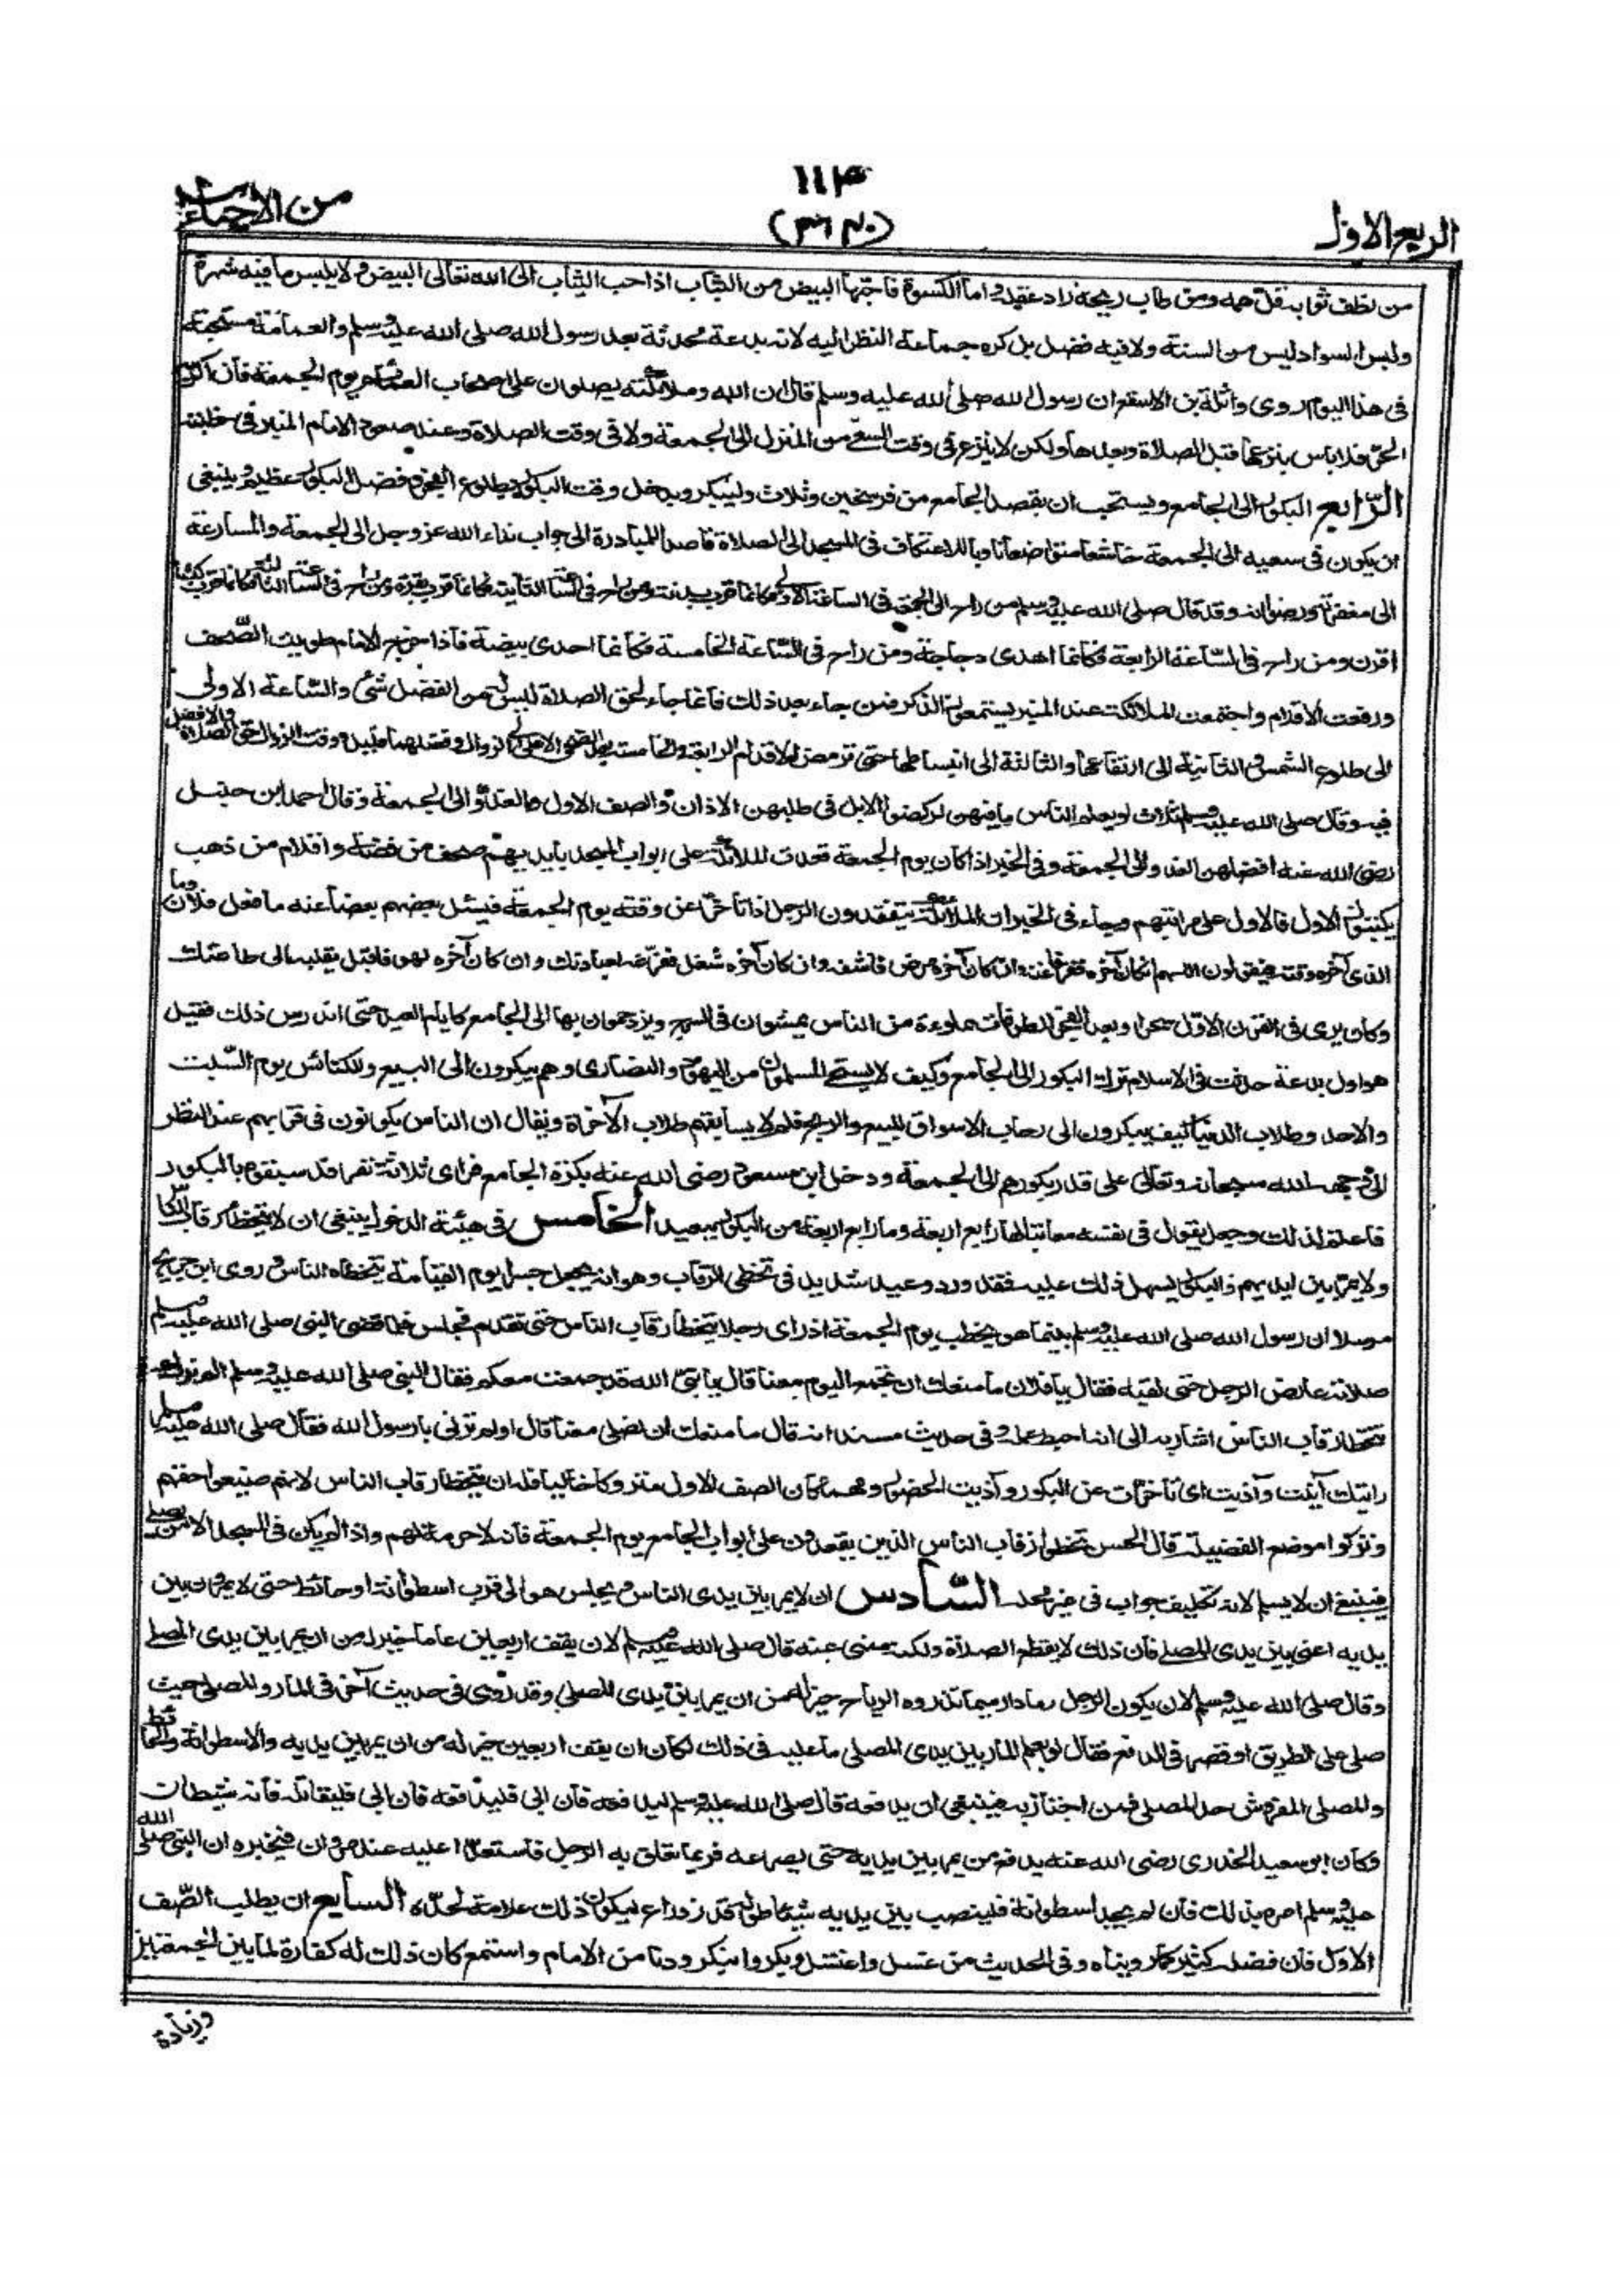 الربع الاول
١١٤
من الاحياء
من نظف ثوابه قل همه ومن طاب ريحه زاد عقله واما الكسوة فاحبها البيض من الثياب اذ احب الثياب الى الله تعالى البيض ولا يلبس ما فيه شهرة
ولبس السواد ليس من السنة ولا فيه فضل بل كره جماعة النظر اليه لانه بدعة محدثة بعد رسول الله صلى الله عليه وسلم والعمامة مستحبة
فى هذا اليوم روى واثلة بن الاسقع ان رسول الله صلى الله عليه وسلم قال ان الله وملائكته يصلون على اصحاب العمائم يوم الجمعة فان اكربه
الحر فلا باس بنزعها قبل الصلاة وبعدها ولكن لا ينزع فى وقت السعى من المنزل الى الجمعة ولا فى وقت الصلاة وعند صعود الامام المنبر فى خطبته
الرابع البكور الى الجامع ويستحب ان يقصد الجامع من فرسخين وثلاث وليبكر ويدخل وقت البكور بطلوع الفجر وفضل البكور عظيم وينبغى
ان يكون فى سعيه الى الجمعة خاشعا متواضعا ناويا للاعتكاف فى المسجد الى الصلاة قاصدا للمبادرة الى جواب نداء الله عز وجل الى الجمعة والمسارعة
الى مغفرته ورضوانه وقد قال صلى الله عليه وسلم من راح الى الجمعة فى الساعة الاولى فكانما قرب بدنة ومن راح فى الساعة الثانية فكانما قرب بقرة ومن راح فى الساعة الثالثة فكانما قرب كبشا
اقرن ومن راح فى الساعة الرابعة فكانما اهدى دجاجة ومن راح فى الساعة الخامسة فكانما اهدى بيضة فاذا خرج الامام طويت الصحف
ورفعت الاقلام واجتمعت الملائكة عند المنبر يستمعون الذكر فمن جاء بعد ذلك فانما جاء لحق الصلاة ليس له من الفضل شئ والساعة الاولى
الى طلوع الشمس والثانية الى ارتفاعها والثالثة الى انبساطها حتى ترمض الاقدام والرابعة والخامسة بعد الضحى الاعلى الى الزوال وفضلهما قليل ووقت الزوال حق الصلاة ولا فضل
فيه وقال صلى الله عليه وسلم ثلاث لو يعلم الناس ما فيهن لركضوا الابل فى طلبهن الاذان والصف الاول والغدو الى الجمعة وقال احمد ابن حنبل
رضى الله عنه افضلهن الغدو الى الجمعة وفى الخبر اذا كان يوم الجمعة قعدت الملائكة على ابواب المسجد بايديهم صحف من فضة واقلام من ذهب
يكتبون الاول فالاول على مراتبهم وجاء فى الخبر ان الملائكة يتفقدون الرجل اذا تاخر عن وقته يوم الجمعة فيسئل بعضهم بعضا عنه ما فعل فلان وما
الذى آخره وقته فيقولون اللهم ان كان آخره فقر فاغنه وان كان آخره مرض فاشفه وان كان آخره شغل ففرغه لعبادتك وان كان آخره لهو فاقبل بقلبه الى طاعتك
وكان يرى فى القرن الاول سحرا وبعد الفجر الطرقات مملوءة من الناس يمشون فى السرج ويزدحمون بها الى الجامع كايام العيد حتى اندرس ذلك فقيل
هو اول بدعة حدثت فى الاسلام ترك البكور الى الجامع وكيف لا يستحى المسلمون من اليهود والنصارى وهم يبكرون الى البيع والكنائس يوم السبت
والاحد وطلاب الدنيا كيف يبكرون الى رحاب الاسواق للبيع والربح فلم لا يسابقهم طلاب الآخرة ويقال ان الناس يكونون فى قربهم عند النظر
الى وجه الله سبحانه وتعالى على قدر بكورهم الى الجمعة ودخل ابن مسعود رضى الله عنه بكرة الجامع فراى ثلاثة نفر قد سبقوه بالبكور
فاغتم لذلك وجعل يقول فى نفسه معاتبا لها رابع اربعة وما رابع اربعة من البكور ببعيد الخامس فى هيئة الدخول ينبغى ان لا يتخطى رقاب الناس
ولا يمر بين ايديهم والبكور يسهل ذلك عليه فقد ورد وعيد شديد فى تخطى الرقاب وهو انه يجعل جسرا يوم القيامة يتخطاه الناس وروى ابن جريج
مرسلا ان رسول الله صلى الله عليه وسلم بينما هو يخطب يوم الجمعة اذ راى رجلا يتخطا رقاب الناس حتى تقدم فجلس فلما قضى النبى صلى الله عليه وسلم
صلاته عارض الرجل حتى لقيه فقال يا فلان ما منعك ان تجمع اليوم معنا قال يا نبى الله قد جمعت معكم فقال النبى صلى الله عليه وسلم الم نرك
تتخطا رقاب الناس اشار به الى انه احبط عمله وفى حديث مسند انه قال ما منعك ان تصلى معنا قال اولم ترنى يا رسول الله فقال صلى الله عليه وسلم
رايتك آنيت وآذيت اى تاخرت عن البكور وآذيت الحضور ومهما كان الصف الاول متروكا خاليا فله ان يتخطا رقاب الناس لانهم ضيعوا حقهم
وتركوا موضع الفضيلة قال الحسن تخطوا رقاب الناس الذين يقعدون على ابواب الجامع يوم الجمعة فانه لا حرمة لهم واذا لم يكن فى المسجد الا من يصلى
فينبغى ان لا يسلم لانه تكليف جواب فى غير محله السادس ان لا يمر بين يدى الناس ويجلس هو الى قرب اسطوانة او حائط حتى لا يمرون بين
يديه اعنى بين يدى المصلى فان ذلك لا يقطع الصلاة ولكنه منهى عنه قال صلى الله عليه وسلم لان يقف اربعين عاما خير له من ان يمر بين يدى المصلى
وقال صلى الله عليه وسلم لان يكون الرجل رمادا رميما تذروه الرياح خير له من ان يمر بين يدى المصلى وقد روى فى حديث آخر فى المار والمصلى حيث
صلى على الطريق او قصر فى الدفع فقال لو يعلم المار بين يدى المصلى ما عليه فى ذلك لكان ان يقف اربعين خير له من ان يمر بين يديه والاسطوانة والحائط
والمصلى المفروش حد المصلى فمن اجتاز به فينبغى ان يدفعه قال صلى الله عليه وسلم ليدفعه فان ابى فليدفعه فان ابى فليقاتله فانه شيطان
وكان ابو سعيد الخدرى رضى الله عنه يدفع من يمر بين يديه حتى يصرعه فربما تعلق به الرجل فاستعدى عليه عند مروان فيخبره ان النبى صلى الله
عليه وسلم امره بذلك فان لم يجد اسطوانة فلينصب بين يديه شيئا طوله قدر ذراع ليكون ذلك علامة لحده السابع ان يطلب الصف
الاول فان فضله كثير كما رويناه وفى الحديث من غسل واغتسل وبكر وابتكر ودنا من الامام واستمع كان ذلك له كفارة لما بين الجمعتين
وزيادة